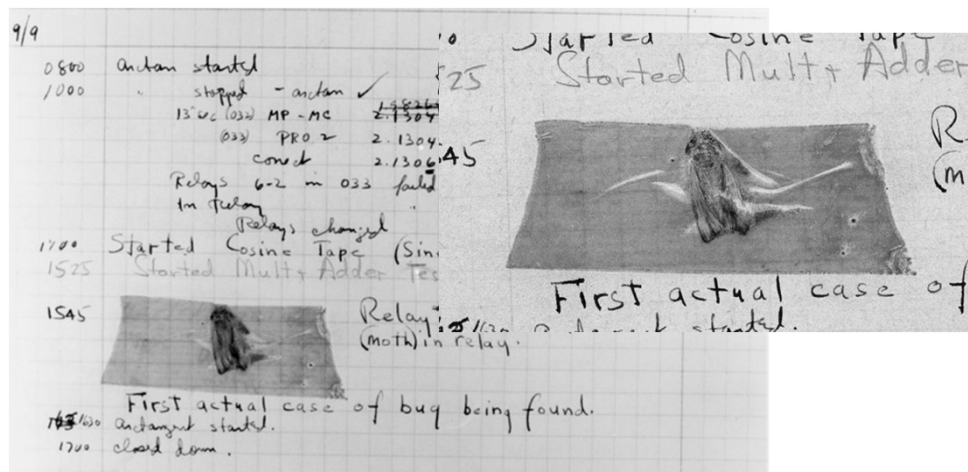 9/9
0800 arctan started
1000 " stopped - arctan ✓
13"uc (032) MP - MC 2.1304
(033) PRO 2 2.1304
conect 2.1306
Relays 6-2 in 033 failed
In Relay
Relays changed
1700 Started Cosine Tape (Sin
1525 Started Mult + Adder Tes
1545 Relay
(moth) in relay.
First actual case of bug being found.
1630 arctangent started.
1700 closed down.
Started Cosine Tape
25 Started Mult + Adder
45 R
(m
First actual case of
started.